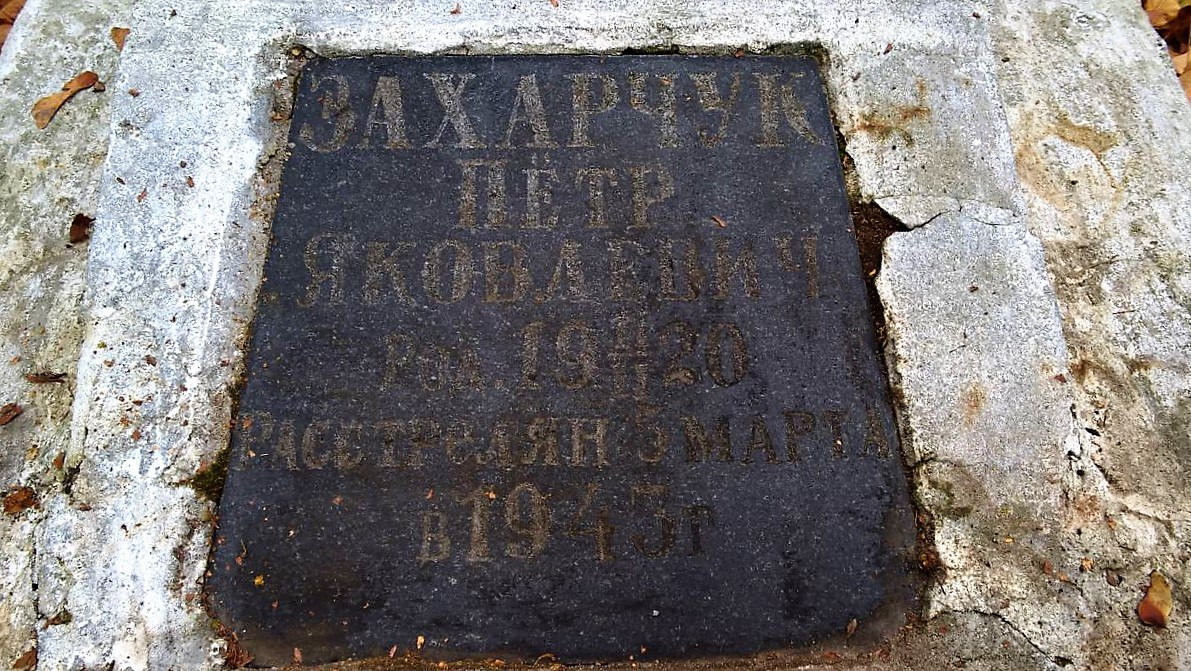 ЗАХАРЧУК
ПЁТР
ЯКОВЛЕВИЧ
РОД. 19 11/II 20
РАССТРЕЛЯН 5 МАРТА
В 1943 Г